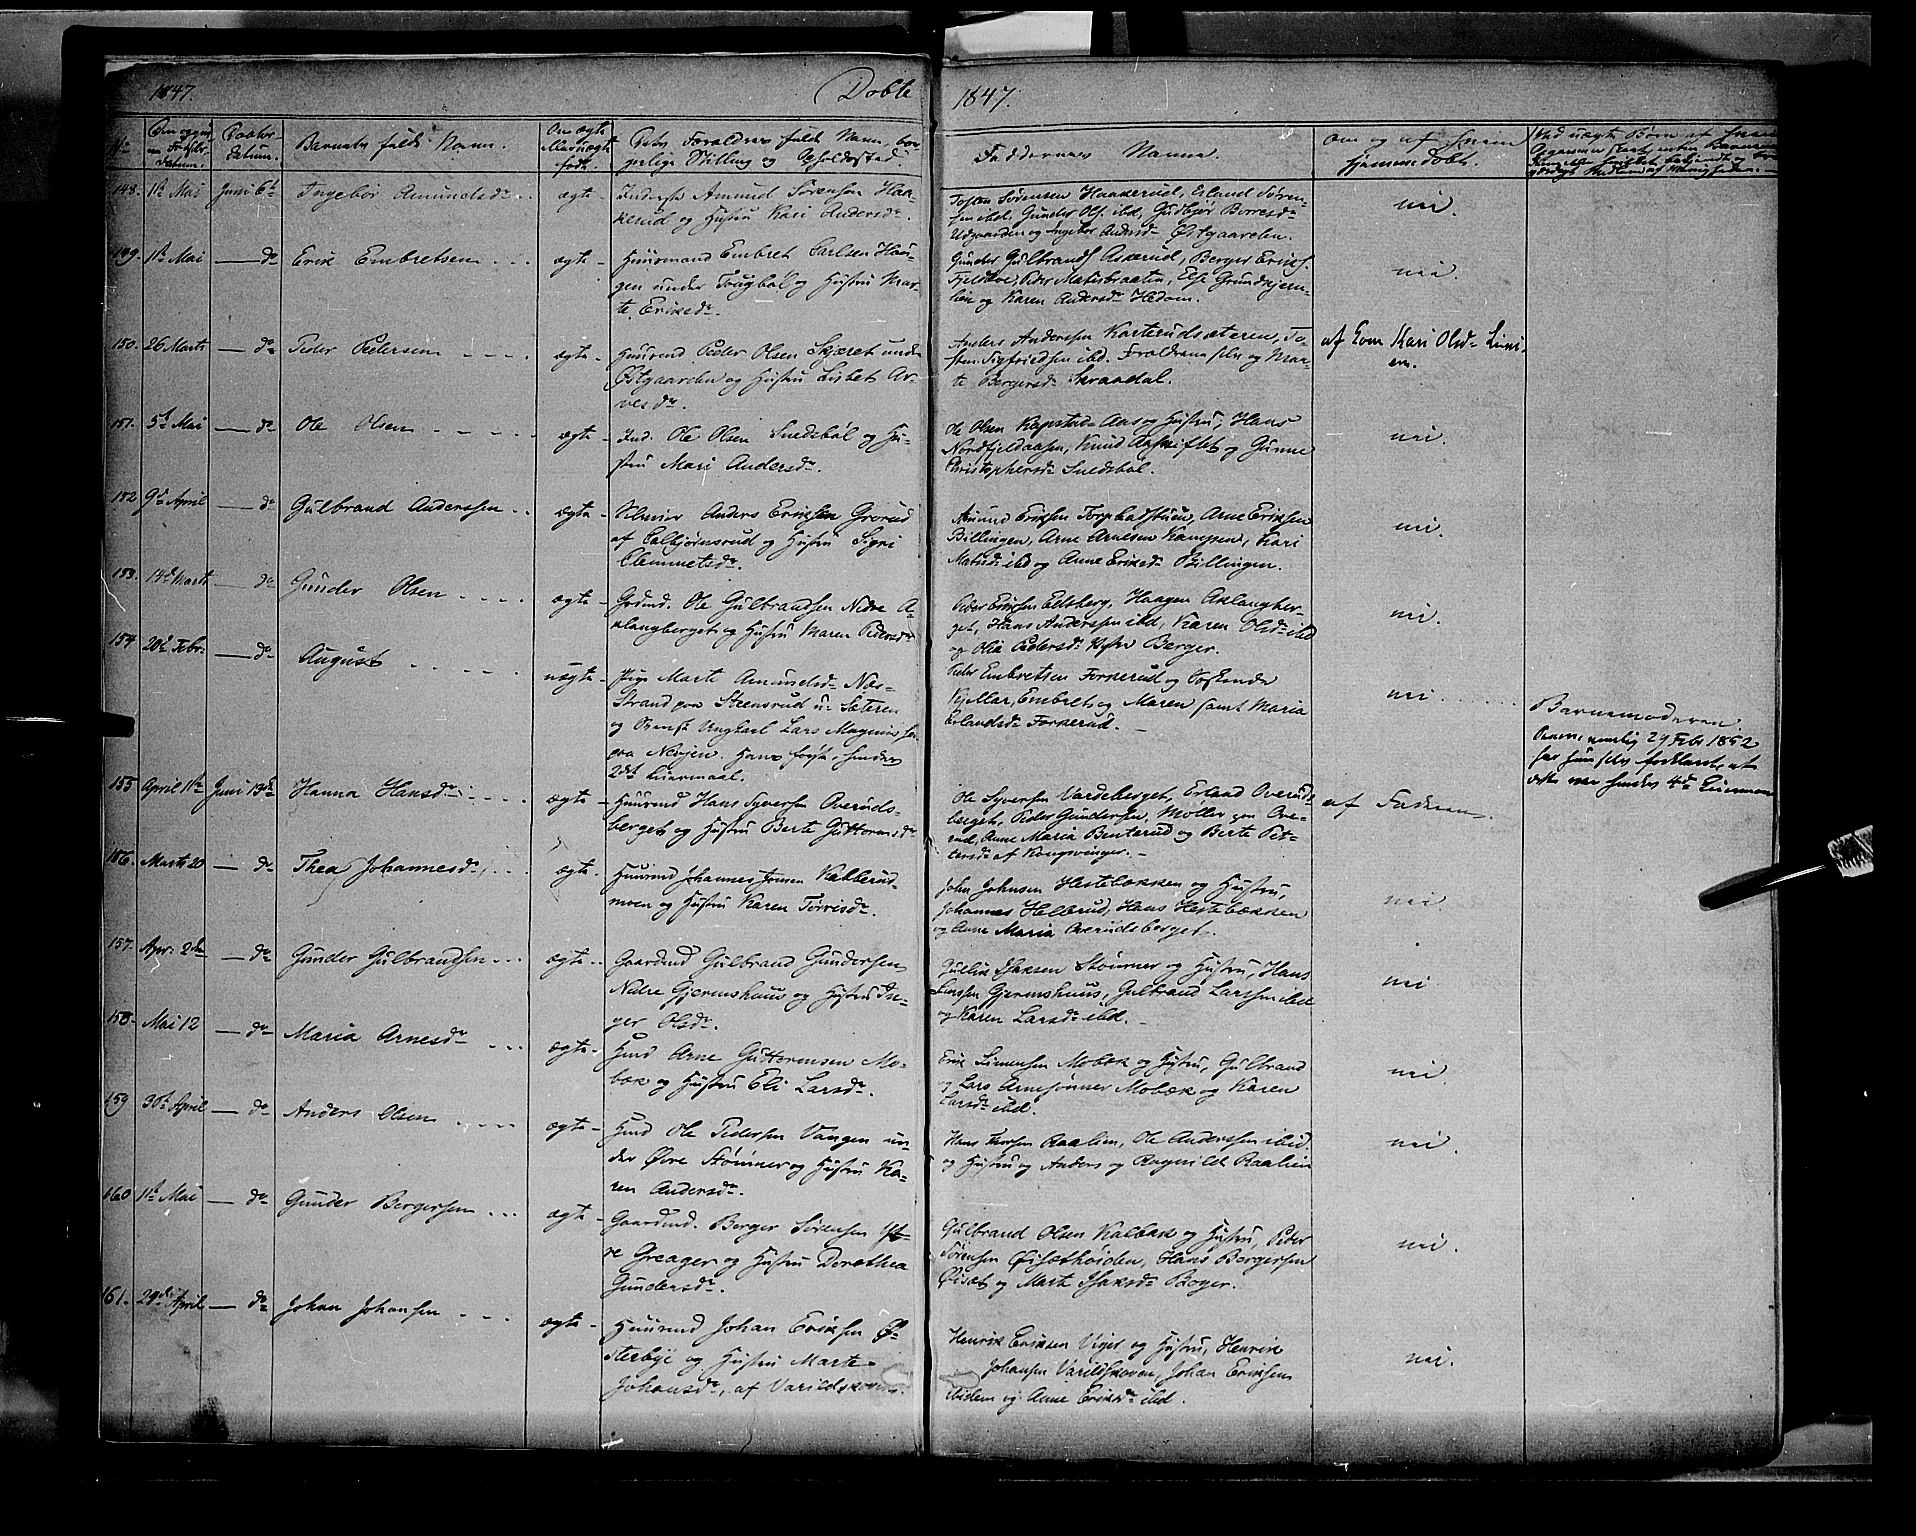 1847. Døbte 1847.
Barnets fulde Navn.
Faddernes Navne.
hjemmedøbt.
148. 11te Mai Juni 6te Ingebør Amundsdr ægte Inderst Amund Sørensen Haa-
kerud og Hustru Kari Andersdr.
Tosten Sørensen Haakerud, Erland Søren-
sen ibid, Gunder Ols. ibd, Gudbjør Borresdr
Udgaarden og Ingebor Andersdr Østgaarden.
nei.
149. 11te Mai — do Erik Embretsen ægte Huusmand Embret Carlsen Hau-
gen under Tougbøl og Hustru Mar-
te Eriksdr.
Gunder Gulbrands. Askerud, Berger Eriks.
Else Grundtjern-
lien og Karen Andersdr Hedom.
nei.
150. 26 Marts — do Peder Pedersen ægte Huusmd Peder Olsen Skjæret under
Østgaarden og Hustru Lisbet Ar-
vesdr.
Anders Andersen Karterudsæteren, To-
sten Sigfriedsen ibd. Forældrene selv og Mar-
te Bergersdr Skraadal.
af Kone Kari Olsdr Linni-
en.
151. 5te Mai — do Ole Olsen ægte Ind. Ole Olsen Snedsbøl og Hu-
stru Mari Andersdr.
Ole Olsen Kapstad Aas og Hustru, Hans
Nordfjeldaasen, Knud og Gunne
Christophersdr Snedsbøl.
nei.
152 9de April — do Gulbrand Anderssen ægte Anders Eriksen Grorud
af Calbjørnsrud og Hustru Sigri
Clemmetsdr.
Amund Eriksen Torpbadstuen, Arne Eriksen
Billingen, Arne Arnesen Kampen, Kari
ibd og Anne Eriksdr Billingen.
nei.
153. 14de Marts — do Gunder Olsen ægte Grdmd. Ole Gulbrandsen Nedre A-
klangberget og Hustru Maren Pedersdr
Peder Eriksen Eltsberg, Haagen Aklangber-
get, Hans Anderssen ibd, Karen Olsdr ibd
og Olia Pedersdr Berger.
nei.
154 20de Febr. — do August uægte Pige Marte Amundsdr Næs-
Strand paa Steensrud u. Sæteren
og Svensk Ungkarl Lars Magnussen
paa Nevjen. Hans første, hendes
2det Leiermaal.
Peder Embretsen Forkerud og Søskende
Kjellar, Embret og Maren samt Maria
Erlandsdr Forkerud.
nei
Barnemoderen
29 Feb. 1852
har hun selv forklaret, at
dette var hendes 4de Leiermaal
155 April 11te Juni 13de Hanna Hansdr ægte Huusmd Hans Syversen Overuds-
berget og Hustru Berte Guttormsdr
Ole Syversen Vardeberget, Erland Overuds-
berget, Peder Gundersen, Møller paa Ove-
rud, Anne Maria Benterud og Berte Pet-
tersdr af Kongsvinger.
af Faderen.
156. Marts 20 — do Thea Johannesdr ægte Huusmd Johannes Jonsen Kabberud-
moen og Hustru Karen Torrisdr.
John Johnsen Hestebækken og Hustru,
Johannes Helbrud, Hans Hestebækken
og Anne Maria Overudsberget.
nei.
157. Apr. 2den — do Gunder Gulbrandsen ægte Gaardmd Gulbrand Gundersen
Nedre Gjermshuus og Hustru In-
ger Olsdr.
Gullik Isaksen Stømner og Hustru, Hans
Larssen Gjermshuus, Gulbrand Larssen ibd
og Karen Larsdr ibd.
nei
158. Mai 12 — do Maria Arnesdr ægte Hmd Arne Guttormsen Mo-
bæk og Hustru Eli Larsdr.
Erik Simensen Mobæk og Hustru, Gulbrand
og Lars Arnesønner Mobæk og Karen
Larsdr ibd.
nei.
159 30te April — do Anders Olsen ægte Hmd Ole Pedersen Vangen un-
der Øvre Stømner og Hustru Ka-
ren Andersdr.
Hans Raalien, Ole Anderssen ibid
og Hustru og Anders og Ragnild Raalien
nei.
160 1te Mai — do Gunder Bergersen ægte Gaardmd. Berger Sørensen
Greager og Hustru Dorothea
Gundersdr.
Gulbrand Olsen Kalbæk og Hustru, Peder
Sørensen Øisæthøiden, Hans Bergersen
Øisæt og Marte Isaksdr Roger.
nei.
161. 29de April — do Johan Johansen ægte Huusmd Johan Eriksen Ø-
sterbye og Hustru Marte
Johansdr, af Varildskoven.
Henrik Eriksen Viger og Hustru, Henrik
Johansen Varildskoven, Johan Eriksen
ibidem og Anne Eriksdr ibd.
nei.